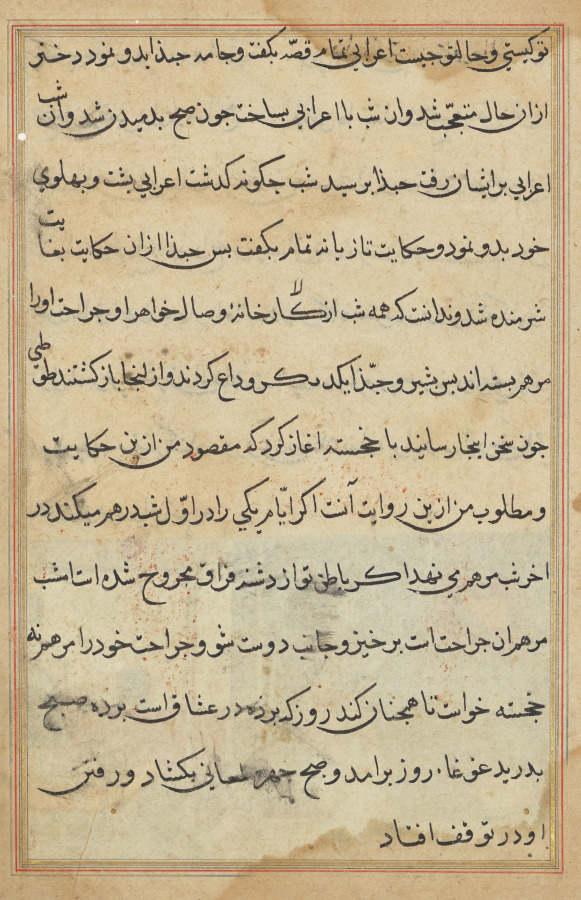 تو کیستی و حال تو چیست اعرابی تمام قصّه بکفت و جامه جبذا بدو نمود دختر
از ان حال متعجّب شد و ان شب با اعرابی بساخت جون صبح بدمیدن شد و ان شب
اعرابی بر ایشان رفت جبذا برسید شب جکونه کذشت اعرابی بشت و بهلوی
خود بدو نمود و حکایت تازیانه تمام بکفت بس جبذا از ان حکایت بغایت
شرمنده شد و ندانست که همه شب از کارخانهٔ وصال خواهر او جراحت او را
مرهم بسته اند بس بشیر و جبّذا یکدیکر وداع کردند و از انجا باز کشتند طوطی
جون سخن اینجا رسانید با خجسته اغاز کرد که مقصود من ازین حکایت
و مطلوب من ازین روایت آنست اکر ایّام یکی را در اوّل شب درهم میکند در
اخر شب مرهمی نهد اکر باطن تو از دشنه فراق مجروح شده است امشب
مرهم ان جراحت است برخیز و جانب دوست شو و جراحت خود را مرهم نه
خجسته خواست تا همجنان کند روز که برده در عشاق است برده صبح
بدرید غوغاء روز برامد و صبح جهره لمعانی بکشاد و رفتن
او در توقف افتاد